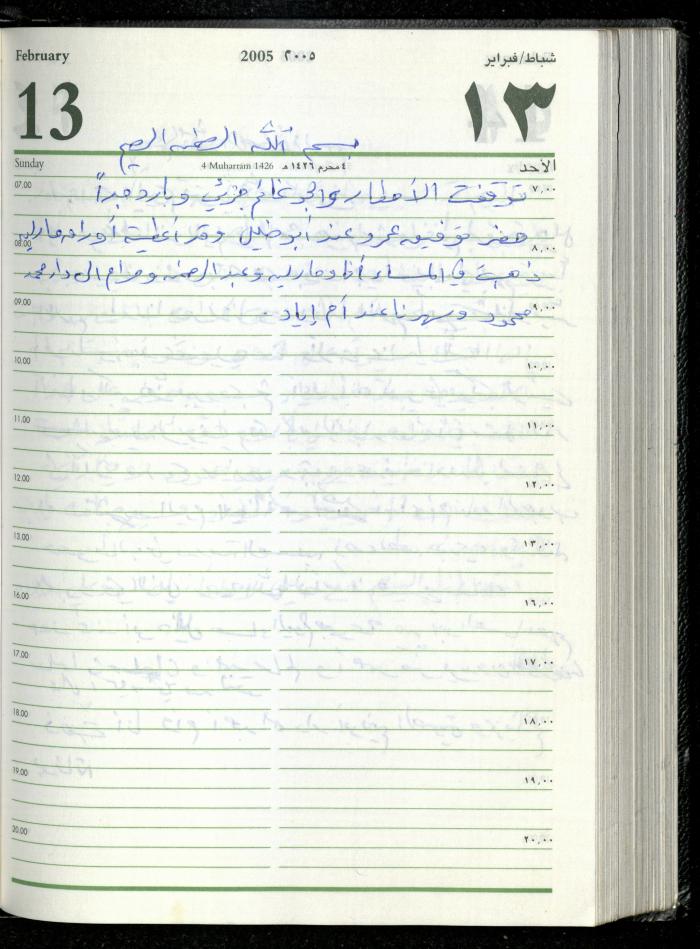 February 2005 ٢٠٠٥ شباط/فبراير
13 ١٣
بسم الله الرحمن الرحيم
Sunday 4 Muharram 1426 ٤ محرم ١٤٢٦ هـ الأحد
07.00 ٧,٠٠
توقفت الأمطار والجو غائم جزئي وبارد جداً
حضر توفيق عمرو عند أبو خليل وقد أعطيته أوراق مارلين
08.00 ٨,٠٠
ذهبت في المساء أنا ومارلين وعبد الرحمن ومرام الى دار محمد
09.00 ٩,٠٠
محمود وسهرنا عند أم إياد .
10.00 ١٠,٠٠
11.00 ١١,٠٠
12.00 ١٢,٠٠
13.00 ١٣,٠٠
16.00 ١٦,٠٠
17.00 ١٧,٠٠
18.00 ١٨,٠٠
19.00 ١٩,٠٠
20.00 ٢٠,٠٠